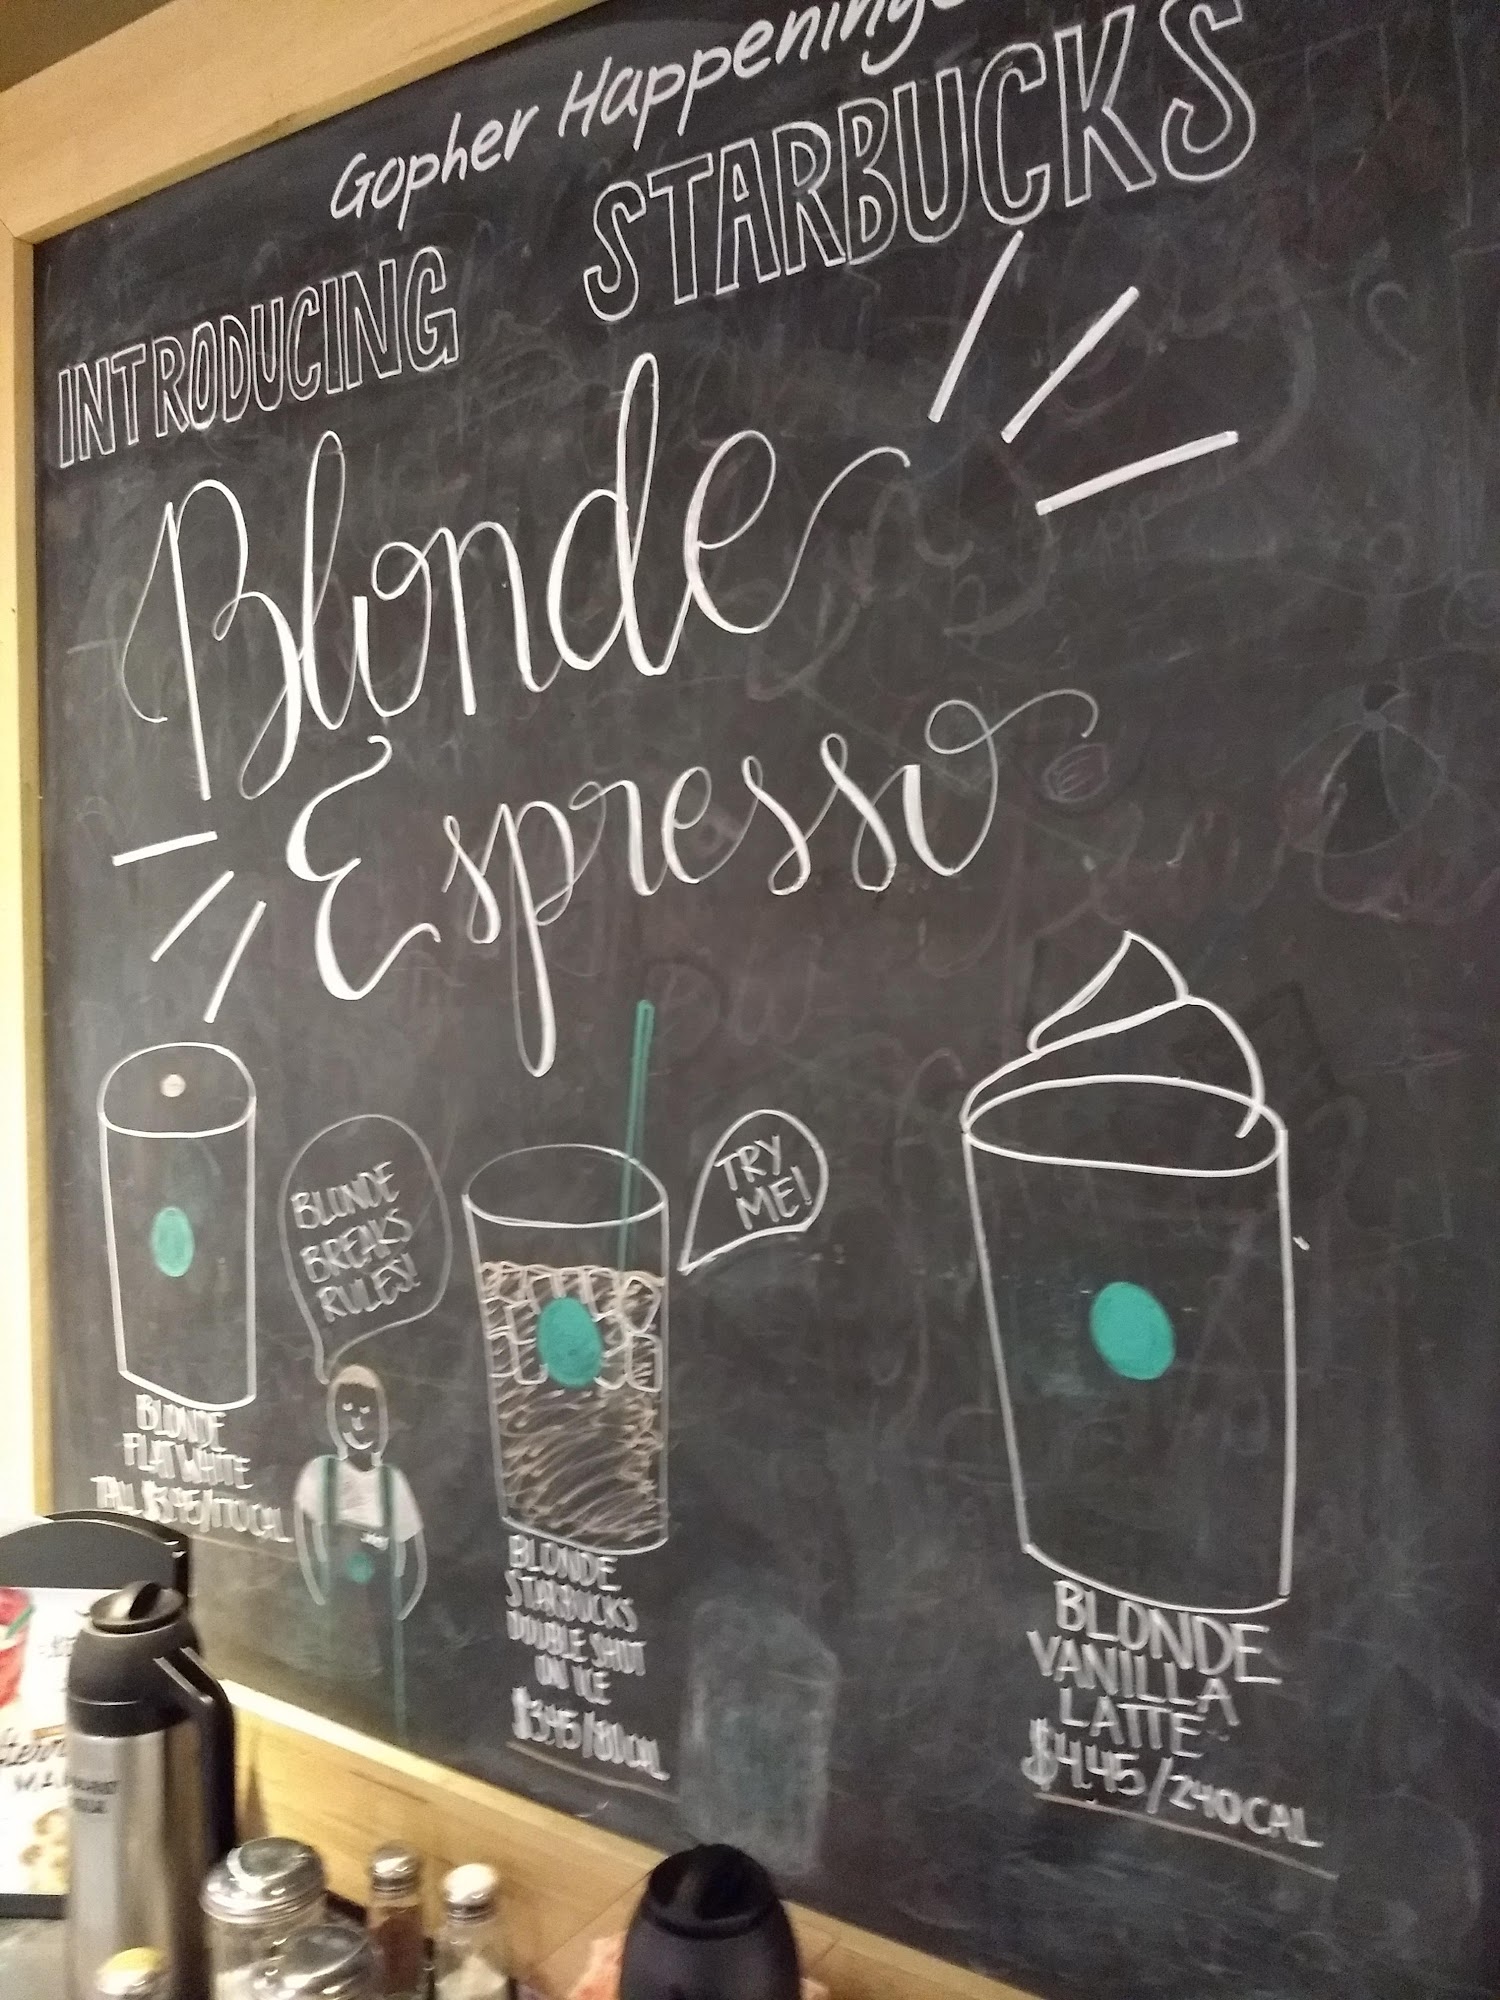 Gopher Happenings
INTRODUCING STARBUCKS
Blonde
Espresso
BLONDE
BREAKS
RULES!
TRY
ME!
BLONDE
FLAT WHITE
TALL
BLONDE
STARBUCKS
DOUBLE SHOT
ON ICE
$3.45/80CAL
BLONDE
VANILLA
LATTE
$4.45/240CAL